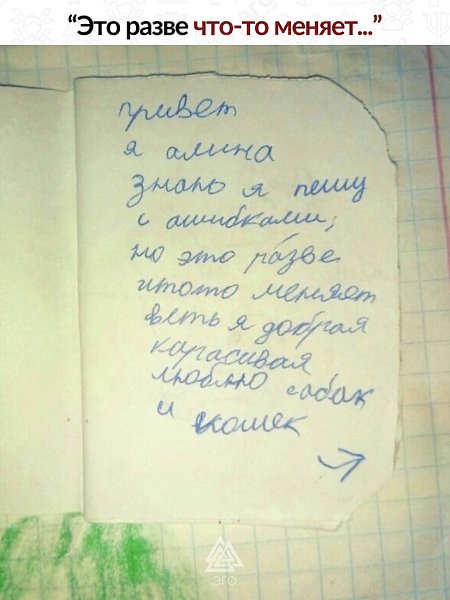 “Это разве что-то меняет...”
привет
я алина
знаю я пешу
с ашибками,
но это разве
итото меняет
веть я добрая
карасивая
люблю сабак
и кошек
эго